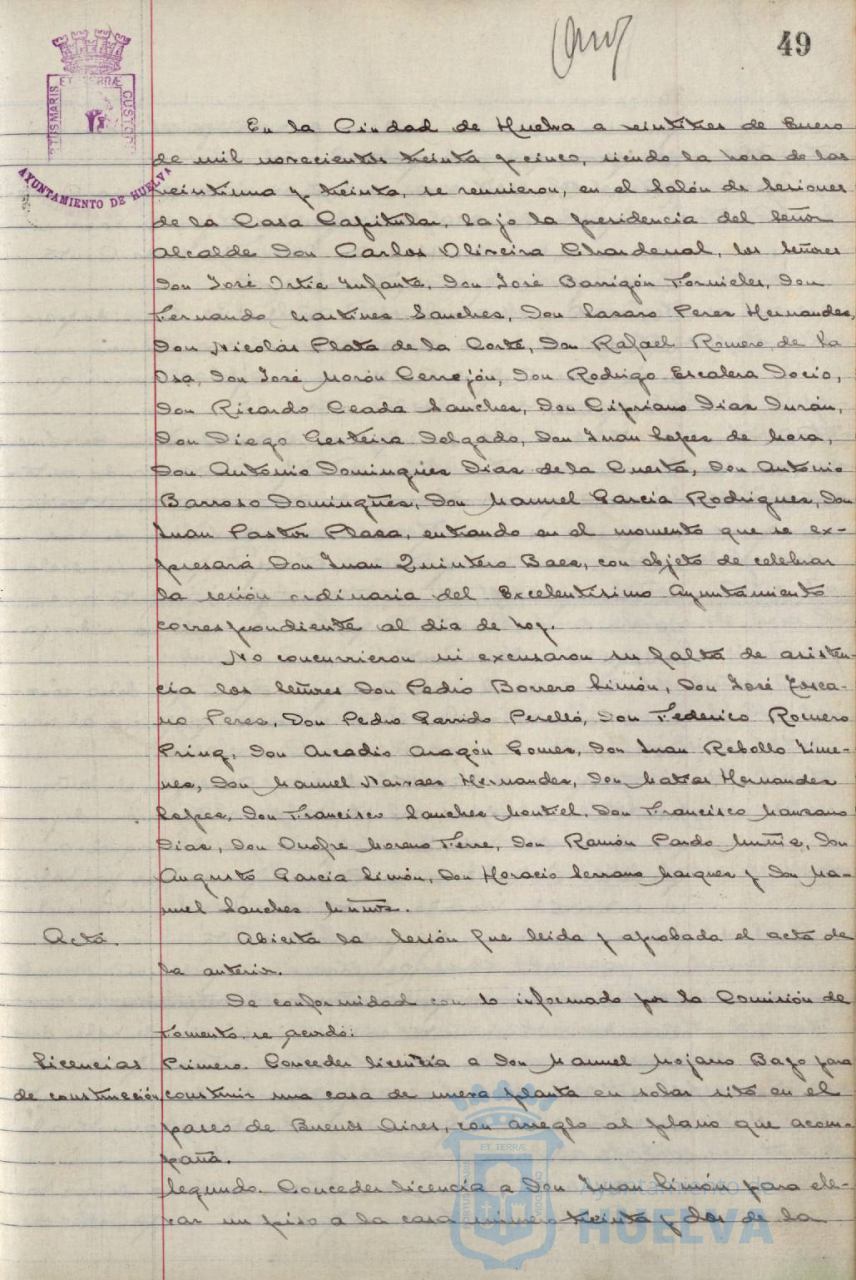 49
ET TERRÆ
TUS MARIS
CUSTO
AYUNTAMIENTO DE HUELVA
En la Ciudad de Huelva a veintitres de Enero
de mil novecientos treinta y cinco, siendo la hora de las
veintiuna y treinta, se reunieron, en el Salón de Sesiones
de la Casa Capitular, bajo la presidencia del Señor
Alcalde Don Carlos Oliveira Chardenal, los Señores
Don José Ortiz Infante, Don José Barrigón Fornieles, Don
Fernando Martines Sanches, Don Lasaro Peres Hernandes,
Don Nicolás Plata de la Corte, Don Rafael Romero de la
Osa, Don José Morón Cerrejón, Don Rodrigo Escalera Docio,
Don Ricardo Ceada Sanches, Don Cipriano Dias Durán,
Don Diego Gesteira Delgado, Don Juan Lopes de Mora,
Don Antonio Domingues Dias de la Cuesta, Don Antonio
Barroso Domingues, Don Manuel García Rodrigues, Don
Juan Pastor Plasa, entrando en el momento que se ex-
presará Don Juan Quintero Baes, con objeto de celebrar
la sesión ordinaria del Excelentísimo Ayuntamiento
correspondiente al día de hoy.
No concurrieron ni excusaron su falta de asisten-
cia los Señores Don Pedro Borrero Limón, Don José Josca-
no Peres, Don Pedro Garrido Perelló, Don Federico Romero
Don Arcadio Aragón Gomes, Don Juan Rebollo Jime-
nes, Don Manuel Narvaes Hernandes, Don Matias Hernandes
Lopes, Don Francisco Sanches Montiel, Don Francisco Manzano
Dias, Don Onofre Moreno Ferre, Don Ramón Pardo Muñis, Don
Augusto García Limón, Don Horacio Serrano Marques y Don Ma-
nuel Sanches Muñis.
Acta. Abierta la Sesión fue leida y aprobada el acta de
la anterior.
De conformidad con lo informado por la Comisión de
Fomento, se acordó:
Licencias Primero. Conceder licencia a Don Manuel Mojarro Bayo para
de construcción construir una casa de nueva planta en solar sito en el
paseo de Buenos Aires, con arreglo al plano que acom-
paña.
Segundo. Conceder licencia a Don Juan Limón para ele-
var un piso a la casa número treinta y dos de la
Ayuntamiento
HUELVA
ET TERRÆ